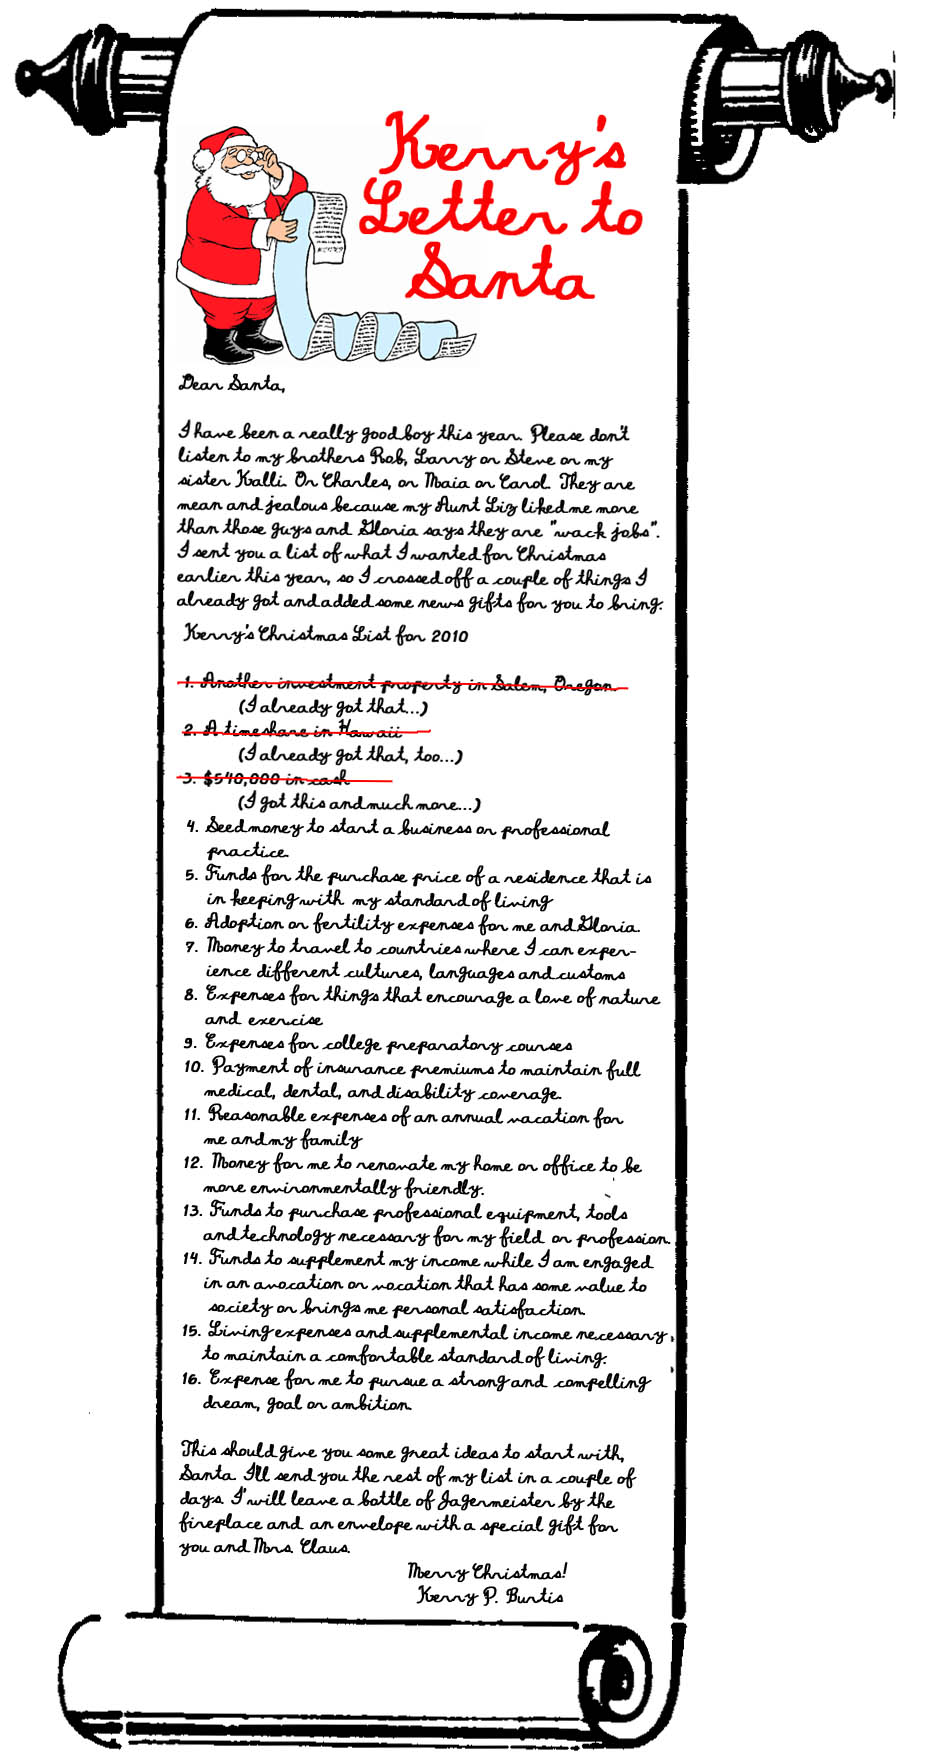 Kerry's
Letter to
Santa
Dear Santa,
I have been a really good boy this year. Please don't
listen to my brothers Rob, Larry or Steve or my
sister Kalli. Or Charles, or Maia or Carol. They are
mean and jealous because my Aunt Liz liked me more
than those guys and Gloria says they are "wack jobs".
I sent you a list of what I wanted for Christmas
earlier this year, so I crossed off a couple of things I
already got and added some news gifts for you to bring.
Kerry's Christmas List for 2010
1. Another investment property in Salem, Oregon.
(I already got that...)
2. A timeshare in Hawaii
(I already got that, too...)
3. $540,000 in cash
(I got this and much more...)
4. Seed money to start a business or professional
practice.
5. Funds for the purchase price of a residence that is
in keeping with my standard of living
6. Adoption or fertility expenses for me and Gloria.
7. Money to travel to countries where I can exper-
ience different cultures, languages and customs
8. Expenses for things that encourage a love of nature
and exercise
9. Expenses for college preparatory courses
10. Payment of insurance premiums to maintain full
medical, dental, and disability coverage.
11. Reasonable expenses of an annual vacation for
me and my family
12. Money for me to renovate my home or office to be
more environmentally friendly.
13. Funds to purchase professional equipment, tools
and technology necessary for my field or profession.
14. Funds to supplement my income while I am engaged
in an avocation or vocation that has some value to
society or brings me personal satisfaction.
15. Living expenses and supplemental income necessary,
to maintain a comfortable standard of living.
16. Expense for me to pursue a strong and compelling
dream, goal or ambition.
This should give you some great ideas to start with,
Santa. I'll send you the rest of my list in a couple of
days. I'will leave a bottle of Jagermeister by the
fireplace and an envelope with a special gift for
you and Mrs. Claus.
Merry Christmas!
Kerry P. Burtis